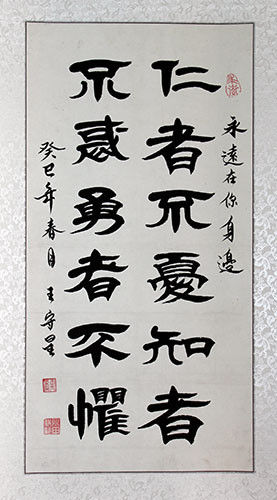 永遠在你身邊
仁者不憂知者
不惑勇者不懼
癸巳年春月王守星